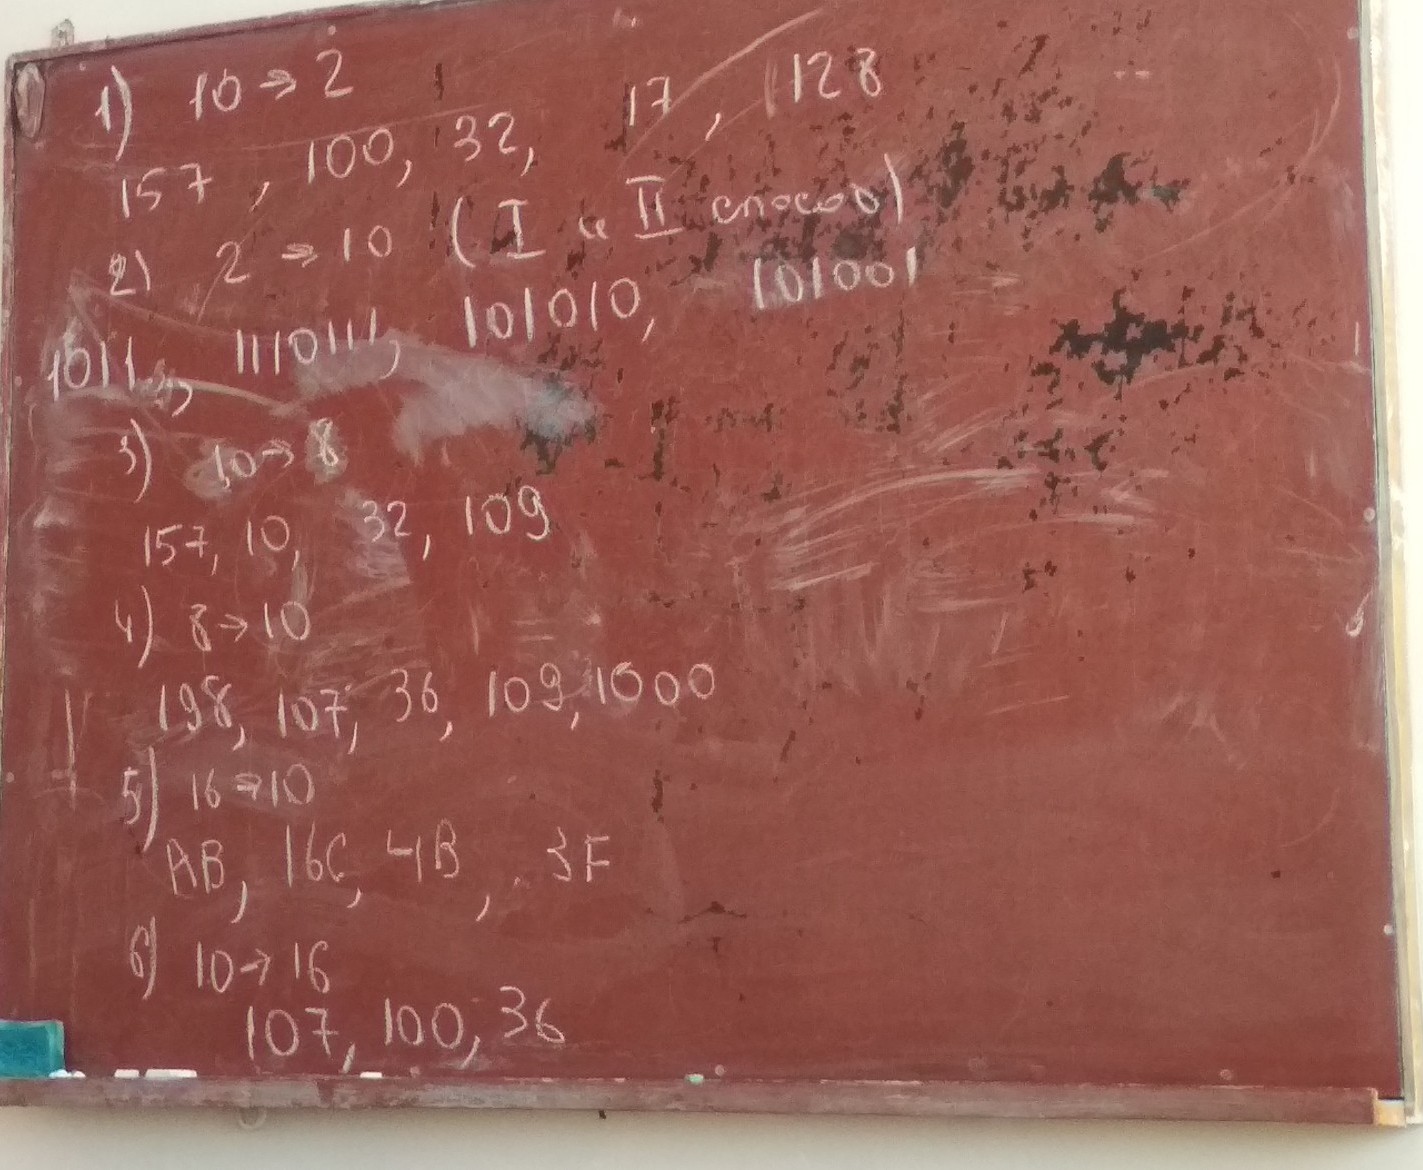 1) 10→2
157, 100, 32, 17, 128
2) 2→10 (I и II способ)
1011, 1110111, 101010, 101001
3) 10→8
157, 10, 32, 109
4) 8→10
198, 107, 36, 109, 1000
5) 16→10
AB, 16C, 4B, 3F
6) 10→16
107, 100, 36